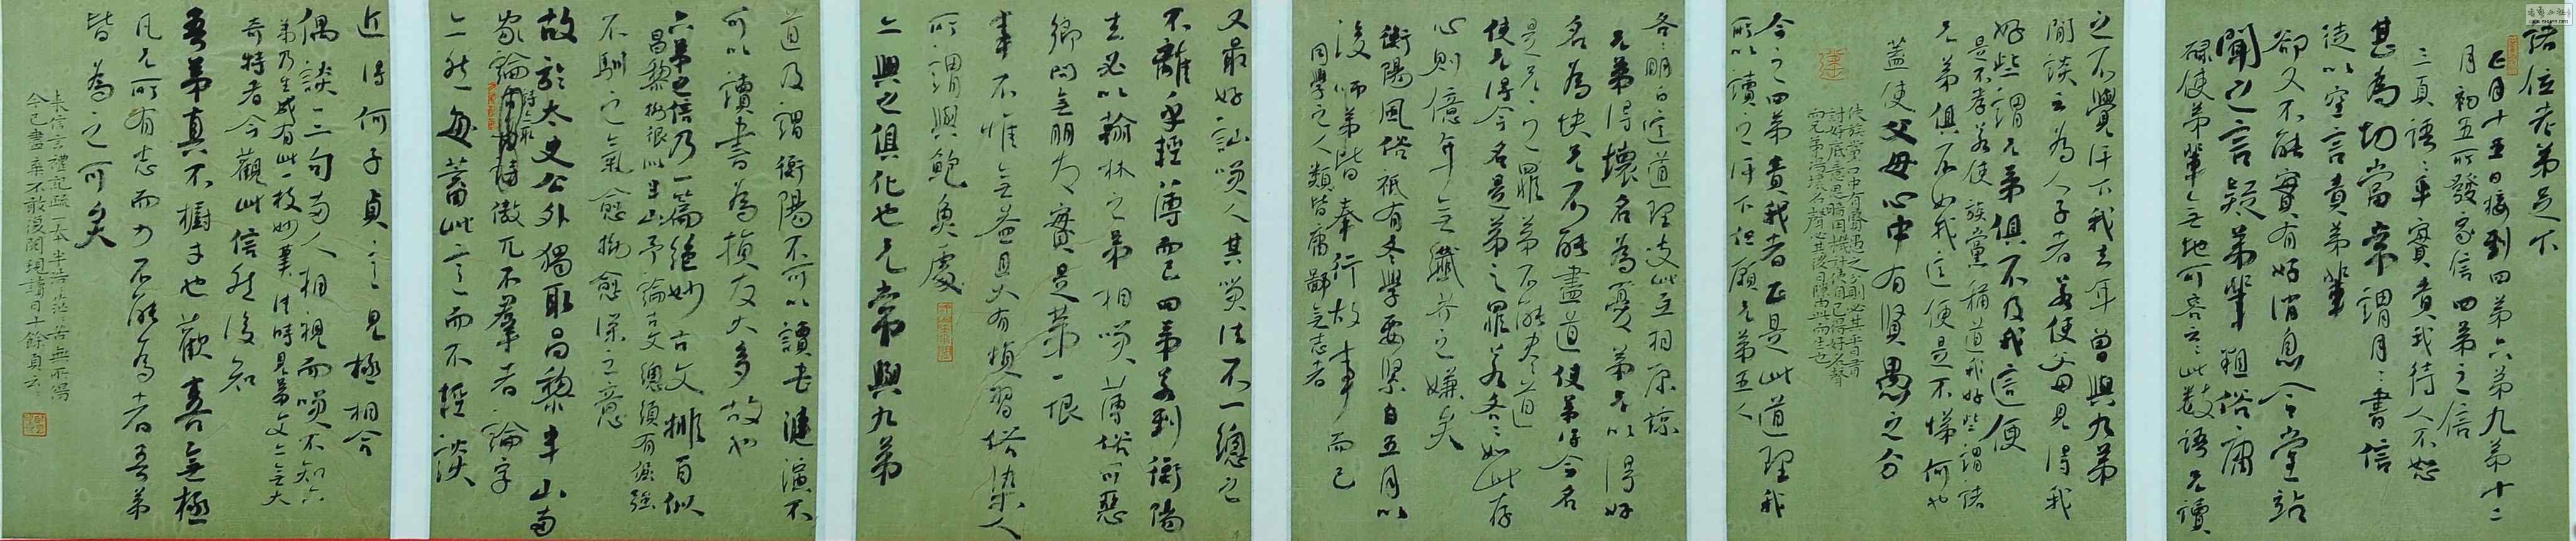 諸位老弟足下
正月十五日接到四弟六弟九弟十二
月初五所發家信四弟之信
三頁語語平實責我待人不恕
甚為切當常謂月月書信
徒以空言責弟輩
卻又不能實有好消息令堂站
聞之言疑弟輩粗俗庸
碌使弟輩無地可容云云此數語兄讀
之不覺汗下我去年曾與九弟
閒談云為人子者若使父母見得我
好些謂兄弟俱不及我這便
是不孝若使族黨稱道我好些謂諸
兄弟俱不如我這便是不悌何也
蓋使父母心中有賢愚之分
使族黨口中有賢愚之分則必其平日有
討好底意思暗用機計使自己得好名聲
而兄弟得壞名聲必其後日隙由此而生也
今之四弟責我者正是此道理我
所以讀之汗下但願兄弟五人
各各明白這道理彼此互相原諒
兄弟得壞名為憂弟兄以得好
名為快兄不能盡道使弟得令名
是兄之罪弟不能盡道
使兄得令名是弟之罪若各各如此存
心則億年無纖芥之嫌矣
衡陽風俗祇有冬學要緊自五月以
後師弟皆奉行故事而已
同學之人類皆庸鄙無志者
又最好訕笑人其笑法不一總之
不離乎輕薄而已四弟若到衡陽
去必以翰林之弟相笑薄俗可惡
鄉間無朋友實是第一恨
事不惟無益且大有損習俗染人
所謂與鮑魚處
亦與之俱化也兄常與九弟
道及謂衡陽不可以讀書漣濱不
可以讀書為損友太多故也
六弟之信乃一篇絕妙古文排百似
昌黎拗很似半山予論古文總須有倔強
不馴之氣愈拗愈深之意
故於太史公外獨取昌黎半山兩
家論詩亦取傲兀不羣者論字
亦然每蓄此意而不輕談
近得何子貞意見極相合
偶談一二句兩人相視而笑不知六
弟乃生成有此一枝妙筆往時見弟文亦無大
奇特者今觀此信然後知
吾弟真不羈才也歡喜無極
凡兄所有志而力不能為者吾弟
皆為之可矣
來信言禮記疏一本半浩浩茫茫苦無所得
今已盡棄不敢復閱現讀日十餘頁云云